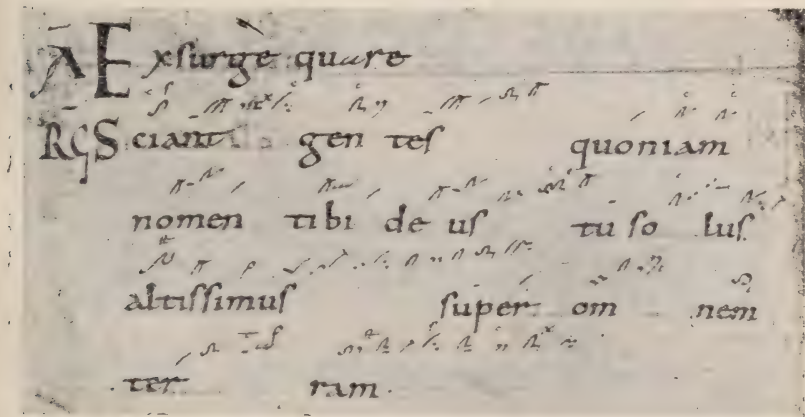 A Exsurge quare
RG Sciant gentes quoniam
nomen tibi deus tu solus
altissimus super omnem
terram.